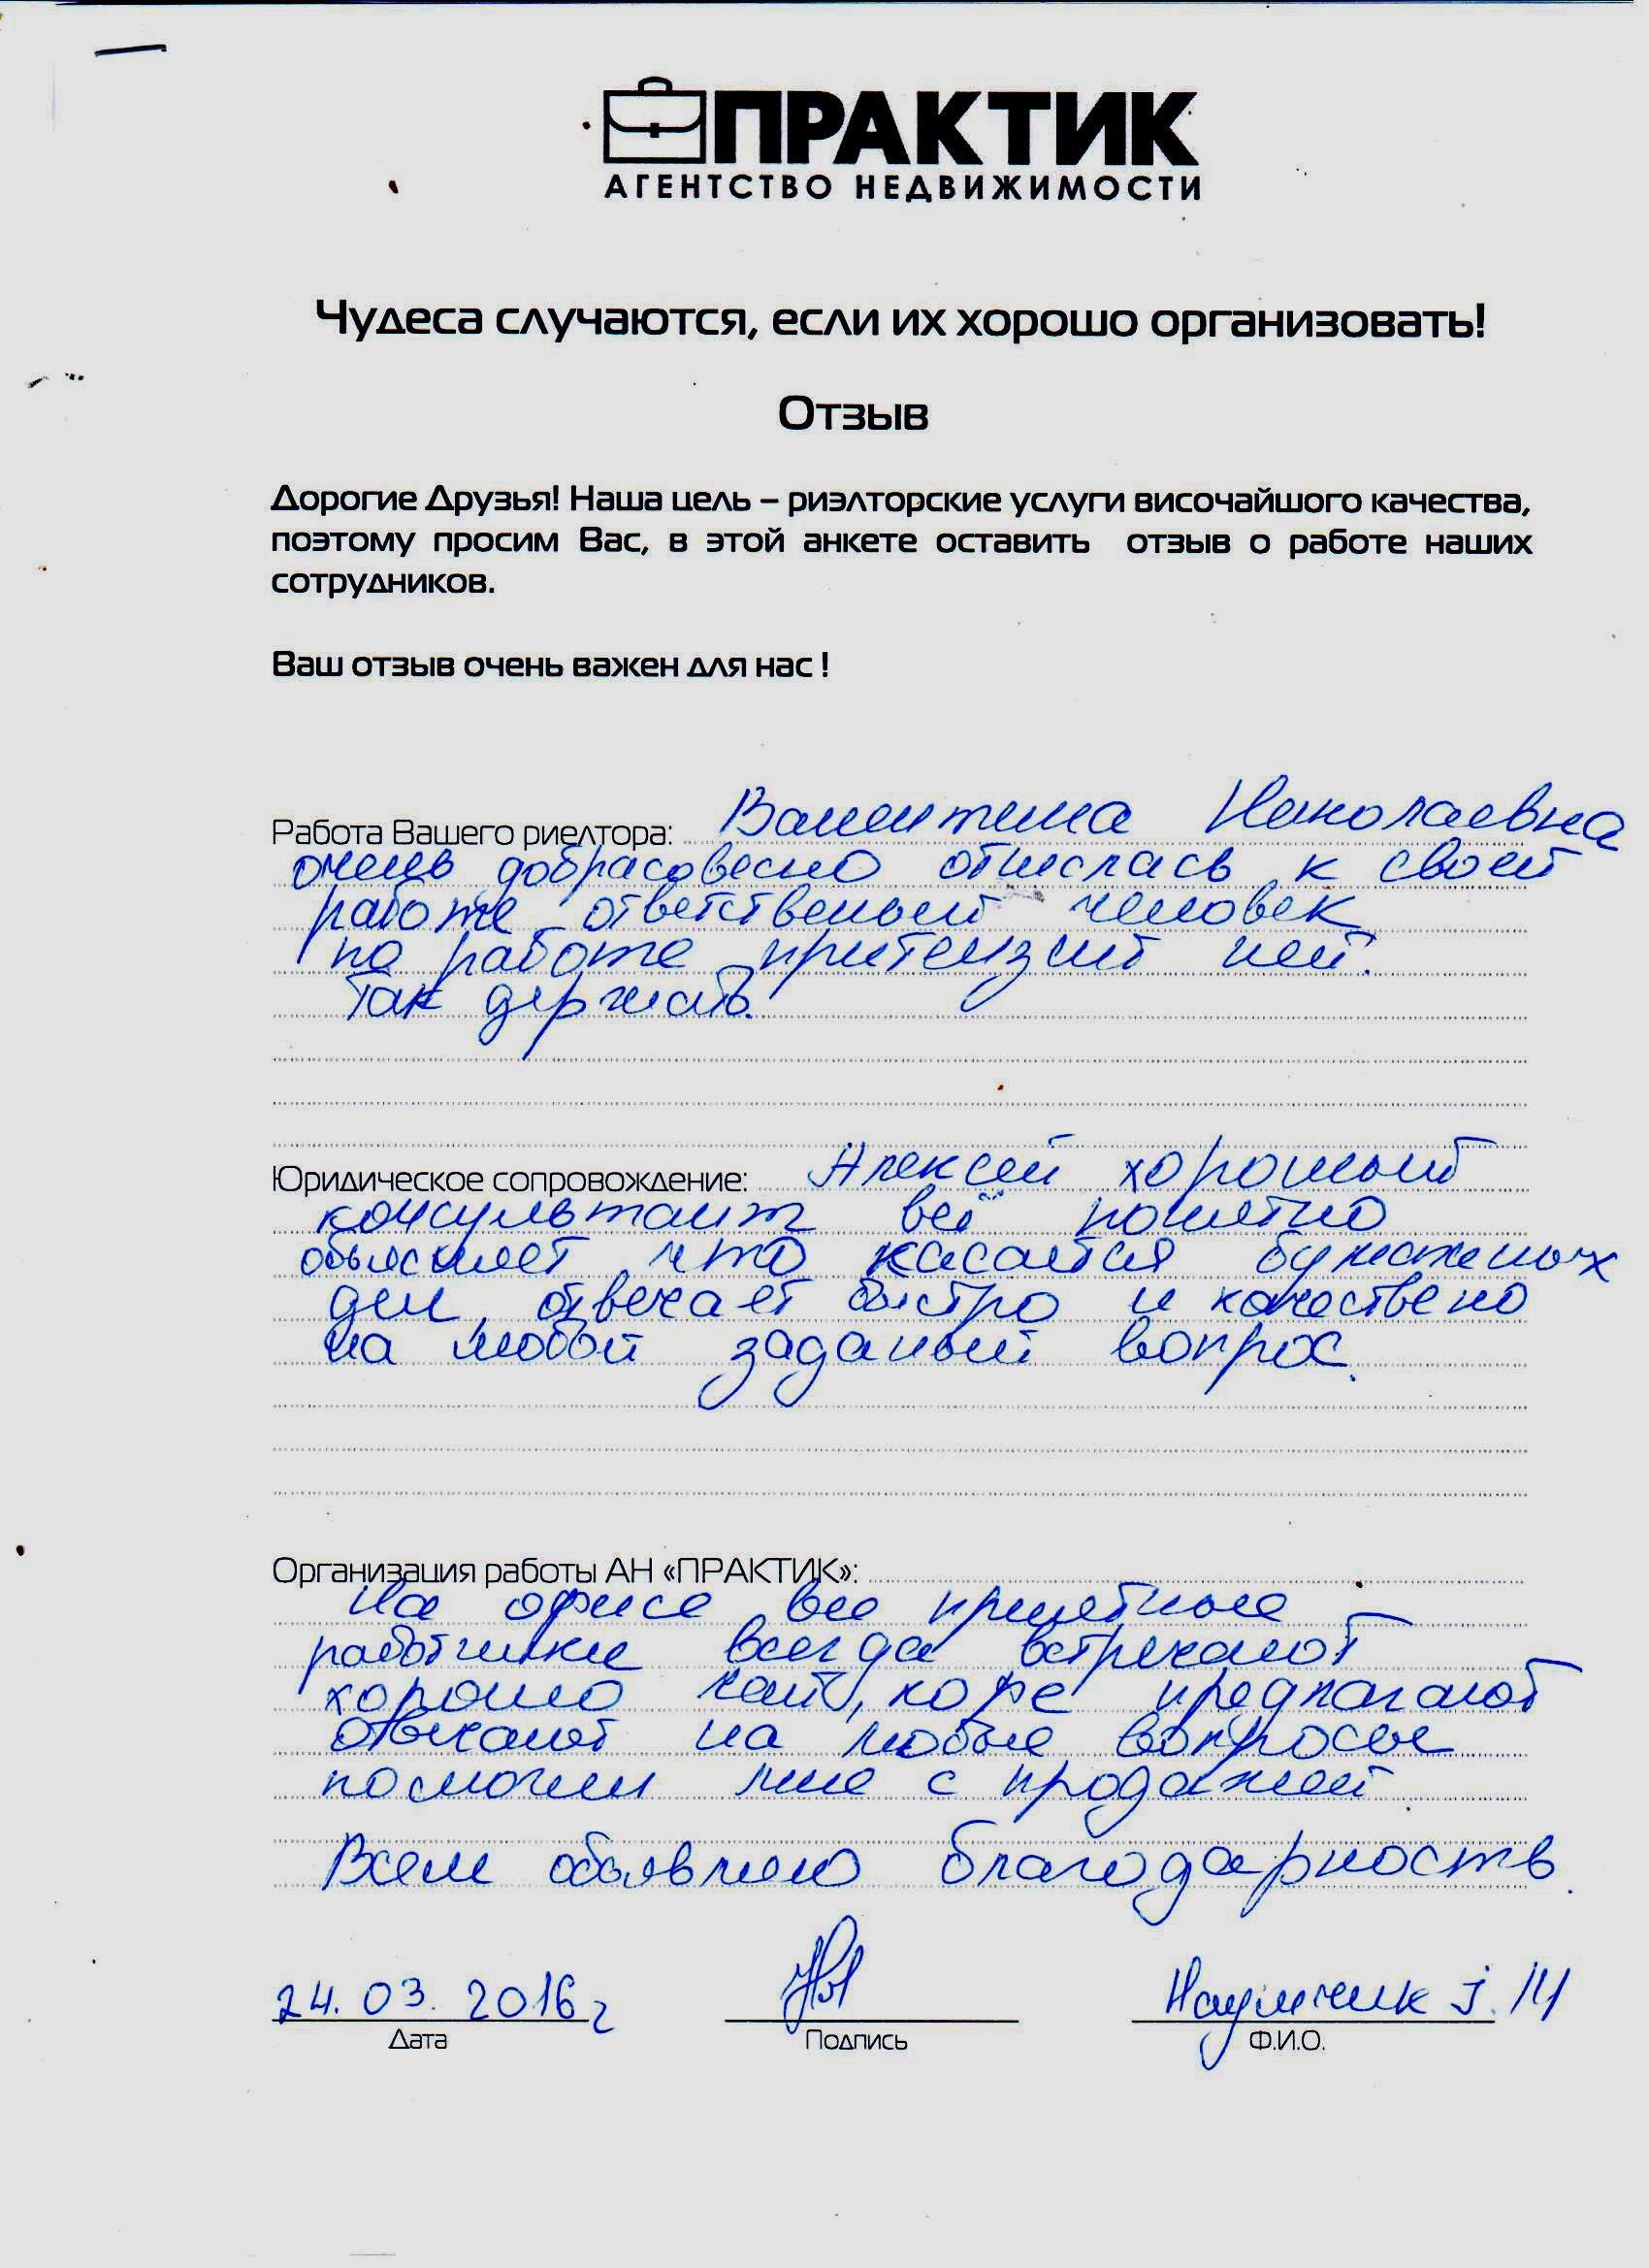 ПРАКТИК
АГЕНТСТВО НЕДВИЖИМОСТИ
Чудеса случаются, если их хорошо организовать!
Отзыв
Дорогие Друзья! Наша цель – риэлторские услуги височайшого качества,
поэтому просим Вас, в этой анкете оставить отзыв о работе наших
сотрудников.
Ваш отзыв очень важен для нас !
Работа Вашего риелтора: Валентина Николаевна
очень добрасовесно отнеслась к своей
работе ответственый человек
по работе притензий нет.
Так держать.
Юридическое сопровождение: Алексей хороший
консультант всё понятно
обьясняет что касается бумажных
дел, отвечает быстро и качествено
на любой заданый вопрос.
Организация работы АН «ПРАКТИК»:
На офисе все приветные
работники всегда встречают
хорошо чай, кофе предлагают
отвечают на любые вопросы
помогли мне с продажей.
Всем обьявляю благодарность.
24.03.2016г
Дата Подпись Ф.И.О.